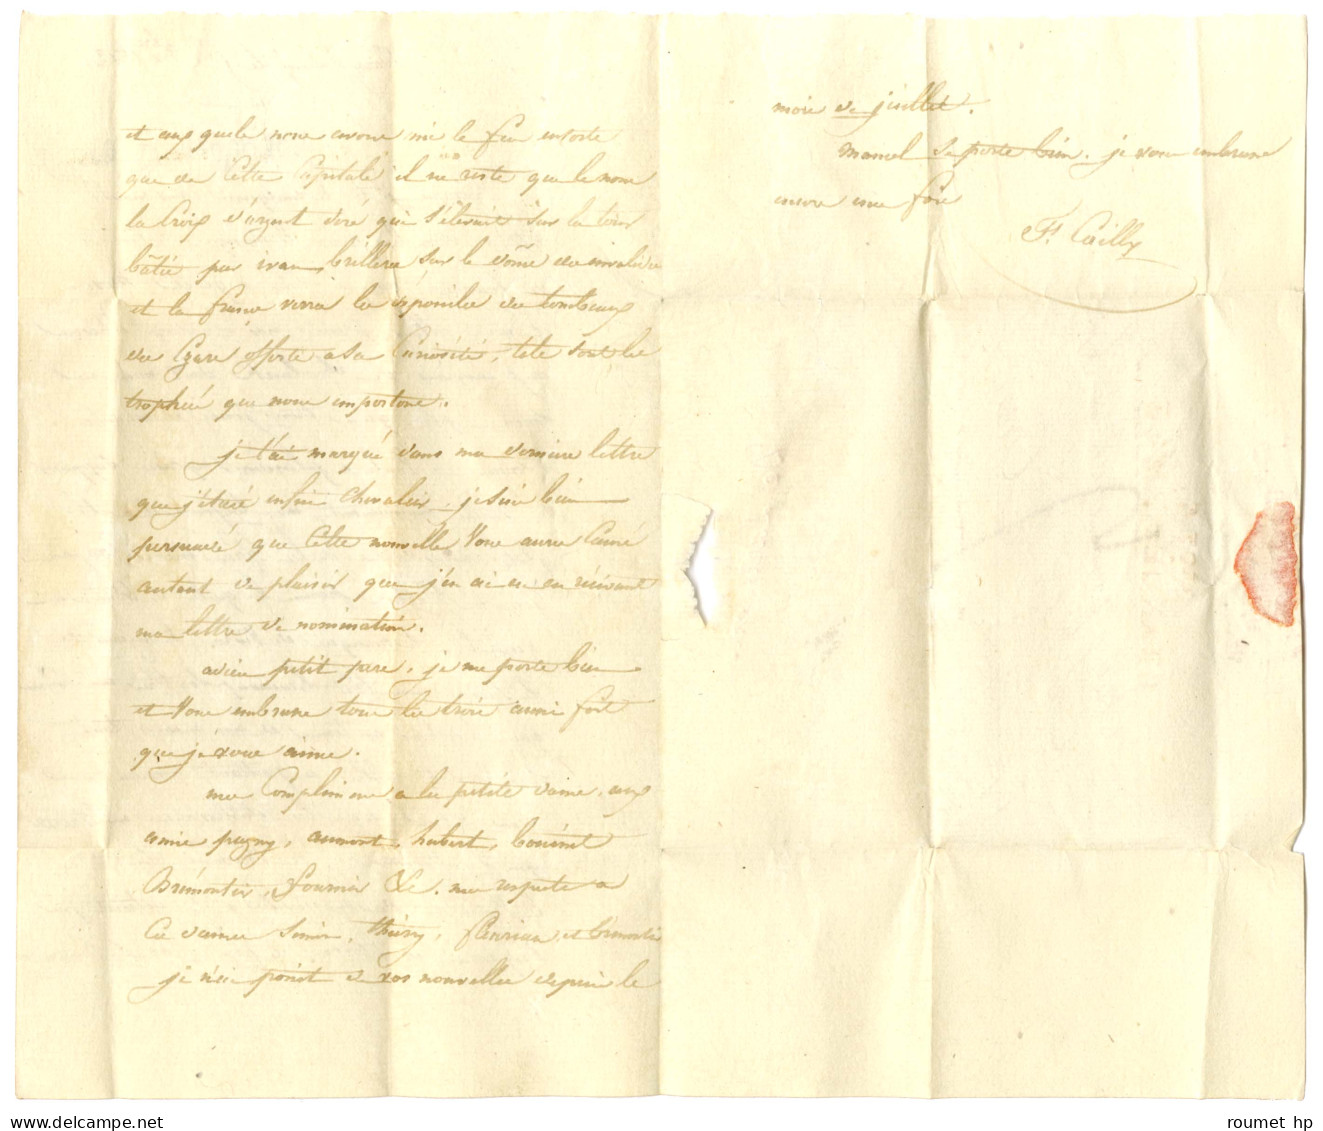 et auxquels nous avons mis le feu ensorte
que de cette Capitale il ne reste que le nom
la Croix d'argent doré qui s'élevait sur la tour
bâtie par ivan brillera sur le dôme des invalides
et la france verra les dépouilles des tombeaux
des Czars offerte a sa Curiosité, tels sont les
trophées que nous emportons.
je t'ai marqué dans ma derniere lettre
que j'étais enfin chevalier, je suis bien
persuadé que cette nouvelle Vous aura Causé
autant de plaisir que j'en ai eu en récivant
ma lettre de nomination.
adieu petit pere, je me porte bien
et Vous embrasse tous les trois aussi fort
que je vous aime.
mes Complimens a les petite dames, aux
amis pugny, aumont, hubert,
Brémontier, fournier &c. mes respects a
Ces dames Simon, thiery, fleurian, et brémontier
je n'ai point de vos nouvelles depuis le
mois de juillet.
Mamel se porte bien. je vous embrasse
encore une fois
Ft. Cailly
roumet hp